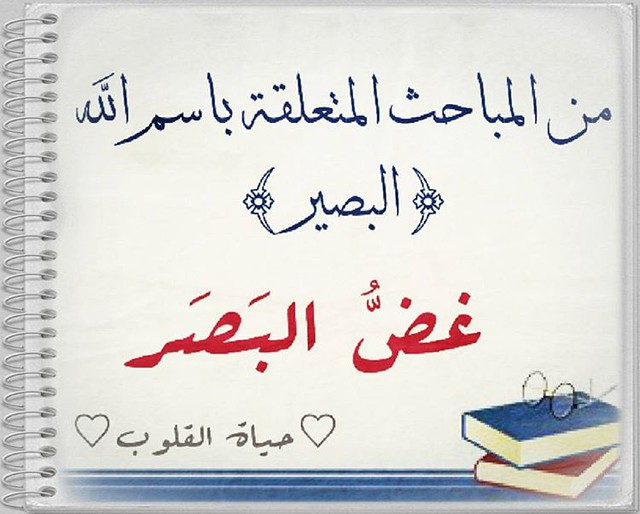 من المباحث المتعلقة باسم الله
﴿البصير﴾
غضُّ البَصَر
♡ حياة القلوب ♡